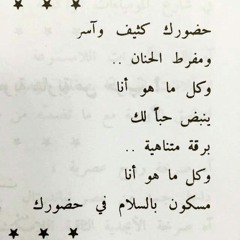 * * *
حضورك كثيف وآسر
ومفرط الحنان ..
وكل ما هو أنا
ينبض حباً لك
برقة متناهية ..
وكل ما هو أنا
مسكون بالسلام في حضورك
* * *